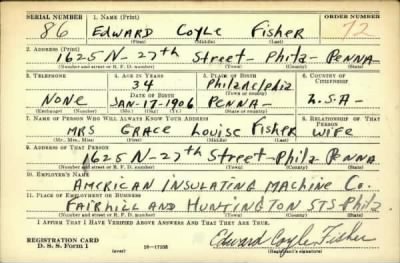 SERIAL NUMBER 1. NAME (Print) ORDER NUMBER
86 EDWARD COYLE FISHER 72
(First) (Middle) (Last)
2. ADDRESS (Print)
1625 N-27th STREET-PHILA-PENNA-
(Number and street or R. F. D. number) (Town) (County) (State)
3. TELEPHONE 4. AGE IN YEARS 5. PLACE OF BIRTH 6. COUNTRY OF CITIZENSHIP
34 PHILADELPHIA
DATE OF BIRTH
NONE JAN-17-1906 PENNA- U.SA-
(Exchange) (Number) (Mo.) (Day) (Yr.) (State or country)
7. NAME OF PERSON WHO WILL ALWAYS KNOW YOUR ADDRESS 8. RELATIONSHIP OF THAT PERSON
MRS GRACE LOUISE FISHER WIFE
(Mr., Mrs., Miss) (First) (Middle) (Last)
9. ADDRESS OF THAT PERSON
1625 N-27th STREET-PHILA-PENNA
(Number and street or R. F. D. number) (Town) (County) (State)
10. EMPLOYER'S NAME
AMERICAN INSULATING MACHINE Co.
11. PLACE OF EMPLOYMENT OR BUSINESS
FAIRHILL AND HUNTINGTON STS PHILA.
(Number and street or R. F. D. number) (Town) (County) (State)
I AFFIRM THAT I HAVE VERIFIED ABOVE ANSWERS AND THAT THEY ARE TRUE.
REGISTRATION CARD Edward Coyle Fisher
D. S. S. Form 1 (over) 16-17105 (Registrant's signature)